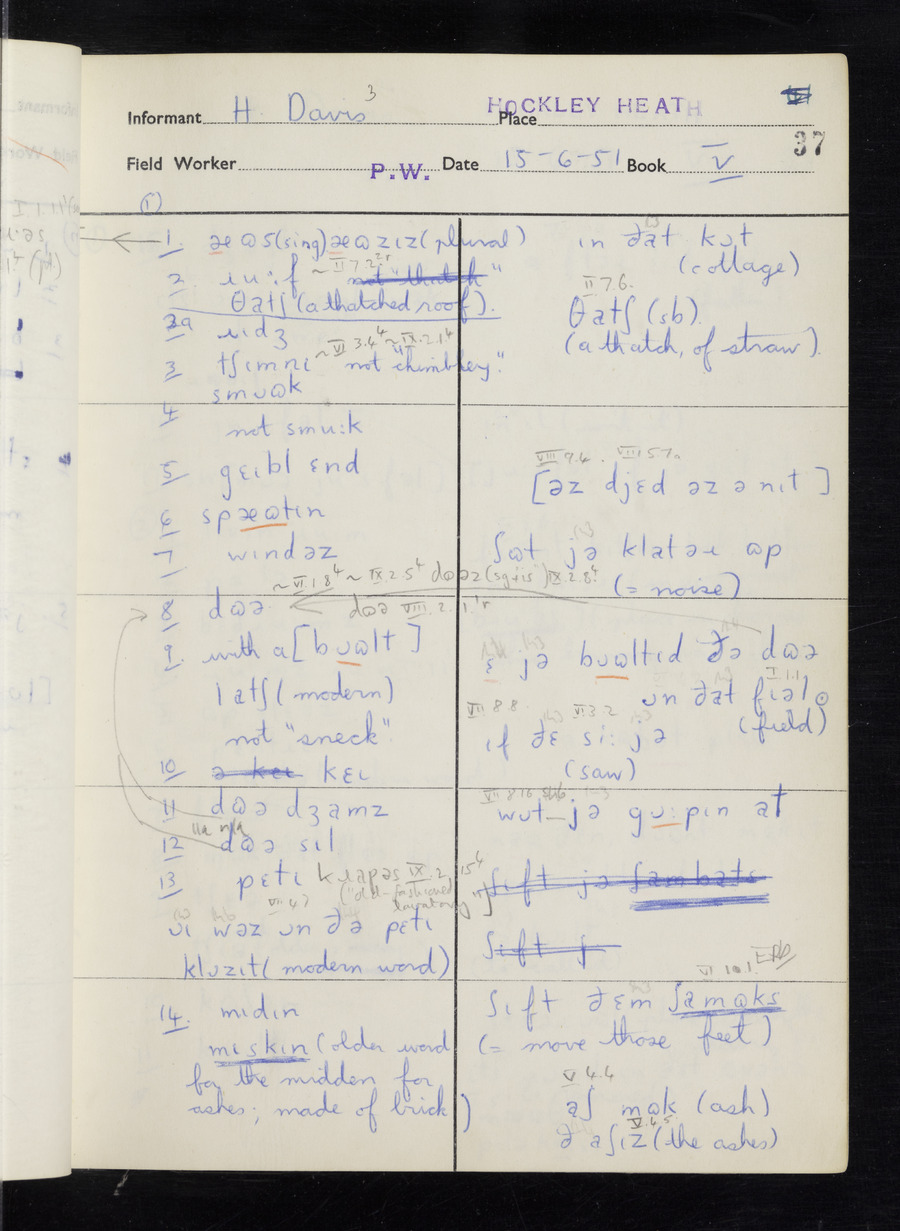 Informant H. Davis 3
HOCKLEY HEATH
Place
37
Field Worker P.W. Date 15-6-51 Book V
(1)
1. æɷs (sing) æɷzɪz (plural)
2 ɹu:f ~ II 7.2 not "thatch"
θatʃ (a thatched roof).
2a ɹɪdʒ
3 tʃɪmnɪ ~ VI 3.4⁴ ~ IX.2.1⁴ not "chimbley."
smuɷk
4 not smu:k
5 gɛɪbl ɛnd
6 spæɷtɪn
7 wɪndəz
~ VI.1.8⁴ ~ IX.2.5⁴ dɷəz (sg + is) IX.2.8⁴
8 dɷə dɷə VIII.2.1.
9. with a [buɷlt]
latʃ (modern)
not "sneck"
10 kɛɪ
11 dɷə dʒamz
11a n/a
12 dɷə sɪl
13 pɛtɪ IX.2.15⁴
("old-fashioned lavatory")
VII 4.7
ʊɪ wəz ʊn ðə pɛtɪ
klʊzɪt (modern word)
14. mɪdɪn
mɪskɪn (older word
for the midden for
ashes; made of brick)
ɪn ðat kɒt
(cottage)
II 7.6.
θatʃ (sb).
(a thatch, of straw).
VIII 9.4. VIII 5.7.
[əz djɛd əz ə nɪt]
ʃɷt jə klatəɹ ɷp
(= noise)
ɛ jə buɷltɪd ðə dɷə
I 1.1
ʊn ðat fɪəl
(field)
VII 8.8 VI 3.2
ɪf ðɛ si: jə
(saw)
VII 8.16
wɒt jə gɒ:pɪn at
ʃɪft jə ʃambəts
ʃɪft j
VI 10.1.
ʃɪft ðɛm ʃamɷks
(= move those feet)
V 4.4
aʃ mɷk (ash)
V.4.5
ð aʃɪz (the ashes)